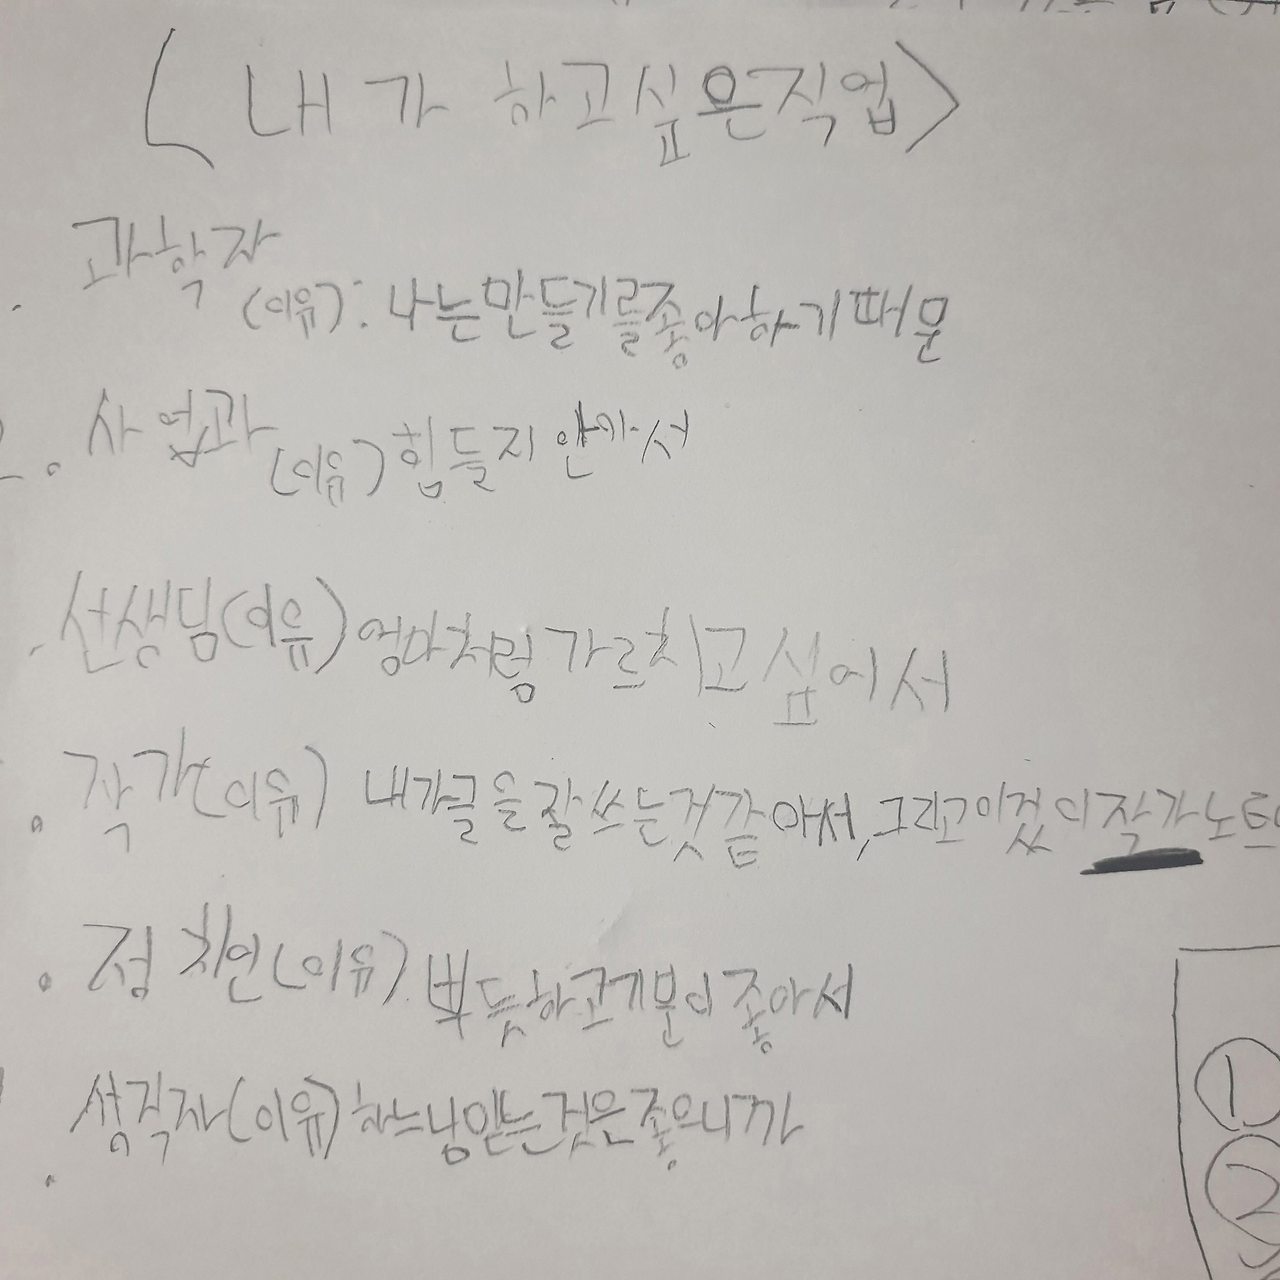 <내가 하고싶은직업>
과학자
(이유): 나는만들기를좋아하기때문
사업과
(이유) 힘들지 안아서
선생딤(이유) 엄마처럼 가르치고 싶어서
작가(이유) 내가글을잘쓰는것같아서, 그리고이것이작가노트
정치인(이유) 뿌듯하고기분이좋아서
성직자(이유) 하느님믿는것은좋으니까
1
2